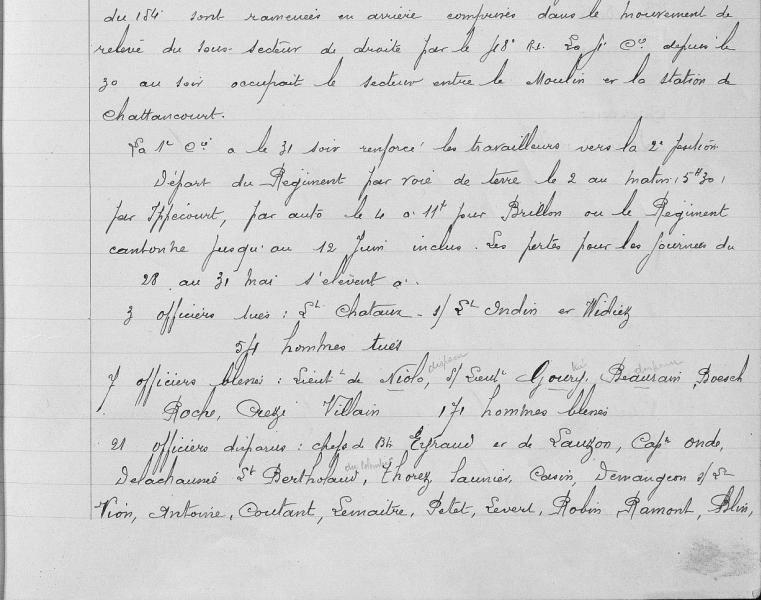 du 154 sont ramenées en arrière comprises dans le mouvement de
relève du sous-secteur de droite par le R.I. La Cie depuis le
30 au soir occupait le secteur entre le Moulin et la station de
Chattancourt.
La 1e Cie a le 31 soir renforcé les travailleurs vers la 2e position.
Départ du Régiment par voie de terre le 2 au matin (5H30)
par Ippécourt, par auto le 4 à 11H pour Brillon ou le Régiment
cantonne jusqu'au 12 Juin inclus. Les pertes pour les journées du
28 au 31 Mai s'élèvent à.
3 officiers tués : Lt Chataux - s/Lt Indin et Widiez
54 hommes tués
disparu tué disparu
7 officiers blessés : Lieutt de Niolo, s/Lieutt Goury, Beaurain Boesch
Roche, Villain 171 hommes blessés
21 officiers disparus : chefs de Bn Eyraud et de Lauzon, Capne Onde,
Delachaumé Lt Bertholaud, Thorez, Saunier, Casin, Demangeon s/Lt
Vion, Antoine, Coutant, Lemaitre, Petet, Levert, Robin Ramont, Blin,